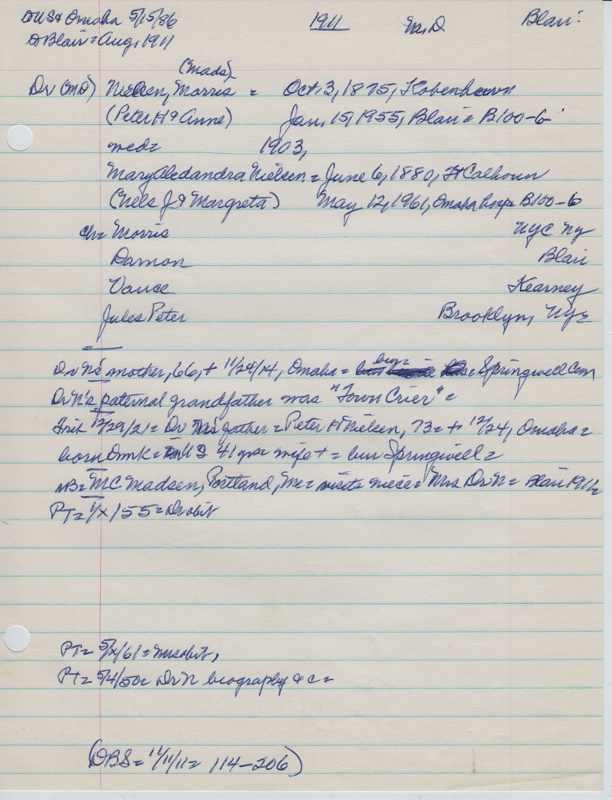 to US & Omaha 5/15/86 1911 Ms.D. Blair:
to Blair = Aug, 1911
(Mads)
Dr (MD) Nielsen, Morris = Oct 3, 1875, Kobenhavn
(Peter H & Anne) Jan, 15, 1955, Blair = B100-6
med= 1903,
Mary Alexandra Nielsen = June 6, 1880, Ft Calhoun
(Nels J & Margreta) May 12, 1961, Omaha hosp B100-6
ch= Morris NYC NY
Damon Blair
Vance Kearney
Jules Peter Brooklyn, NY=
Dr N's mother, 66, + 11/24/14, Omaha = bur= Springwell Cem
Dr N's paternal grandfather was "Town Crier" =
12/29/21= Dr N's father = Peter H Nielsen, 73 = + 12/24, Omaha =
born Dmk = US 41 yrs= wife + = bur Springwell =
NB= MC Madsen, Portland, Me = visits niece = Mrs Dr N = Blair 1911=
PT= 1/x/55= Dr obit
PT= 5/x/61= Mrs obit,
PT= 5/4/50= Dr N biography & c =
(DBS= 11/11/11= 114-206)